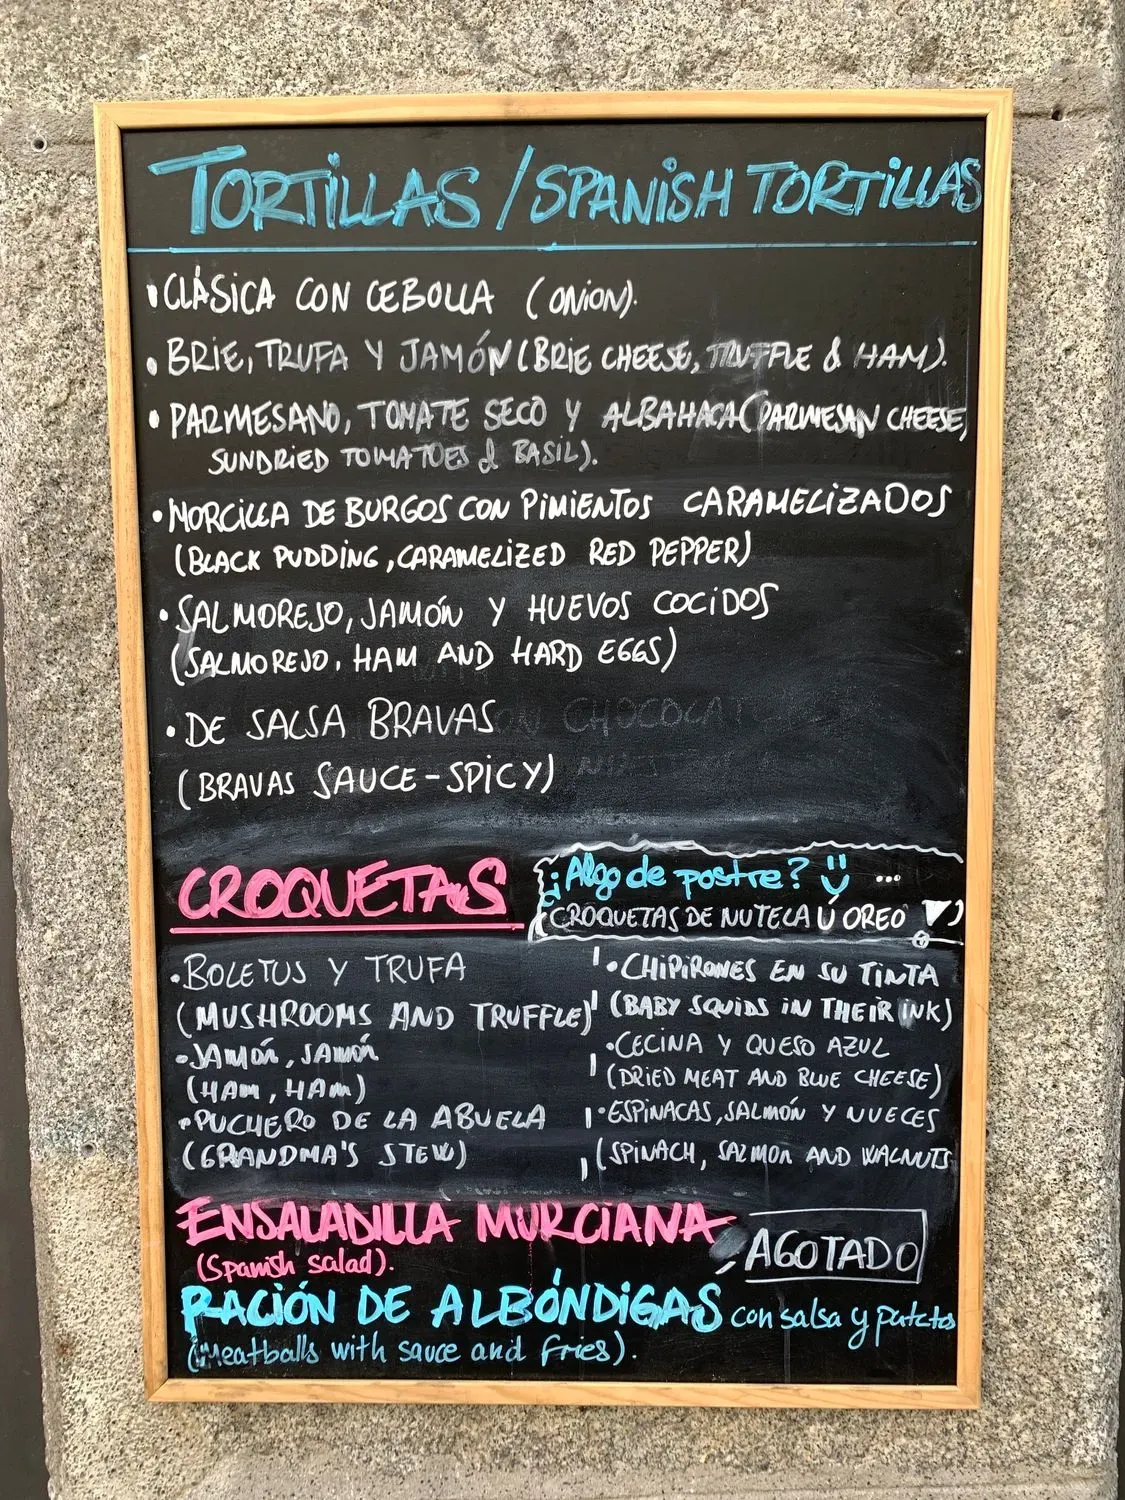 TORTILLAS / SPANISH TORTILLAS
• CLÁSICA CON CEBOLLA (ONION).
• BRIE, TRUFA Y JAMÓN (BRIE CHEESE, TRUFFLE & HAM).
• PARMESANO, TOMATE SECO Y ALBAHACA (PARMESAN CHEESE,
SUNDRIED TOMATOES & BASIL).
• MORCILLA DE BURGOS CON PIMIENTOS CARAMELIZADOS
(BLACK PUDDING, CARAMELIZED RED PEPPER)
• SALMOREJO, JAMÓN Y HUEVOS COCIDOS
(SALMOREJO, HAM AND HARD EGGS)
• DE SALSA BRAVAS
(BRAVAS SAUCE - SPICY)
CROQUETAS
¡Algo de postre? ...
(CROQUETAS DE NUTELA U OREO)
• BOLETUS Y TRUFA
(MUSHROOMS AND TRUFFLE)
• JAMÓN, JAMÓN
(HAM, HAM)
• PUCHERO DE LA ABUELA
(GRANDMA'S STEW)
• CHIPIRONES EN SU TINTA
(BABY SQUIDS IN THEIR INK)
• CECINA Y QUESO AZUL
(DRIED MEAT AND BLUE CHEESE)
• ESPINACAS, SALMÓN Y NUECES
(SPINACH, SALMON AND WALNUTS
ENSALADILLA MURCIANA
AGOTADO
(Spanish salad).
RACIÓN DE ALBÓNDIGAS con salsa y patatas
(Meatballs with sauce and fries).